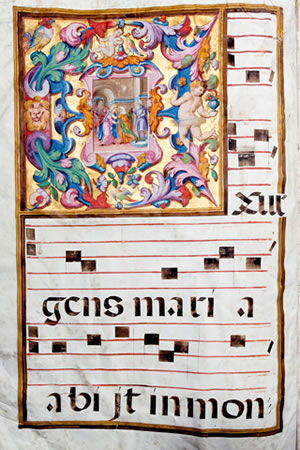 Exur
gens mari a
abi jt in mon